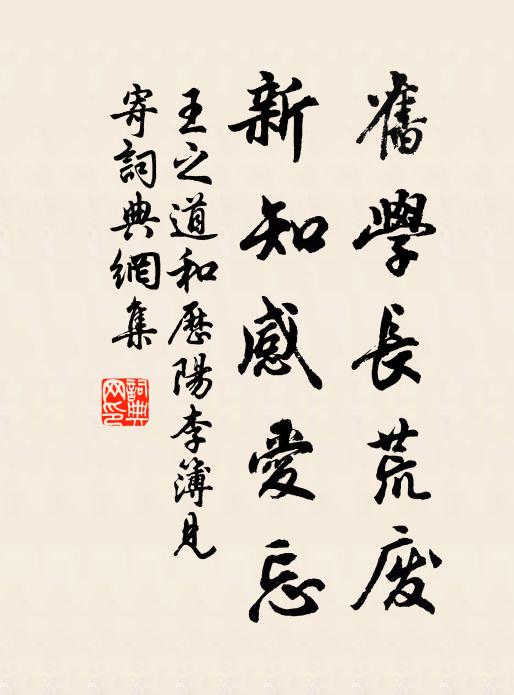 舊學長荒廢
新知感愛忘
王之道和歷陽李簿見
寄詞典網集
詞典網印